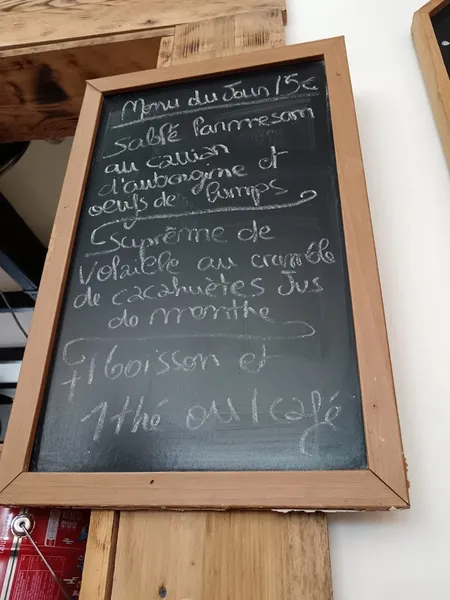 Menu du Jour 15€
Sablé Parmesan
au caviar
d'aubergine et
oeufs de lumps
Suprême de
Volaille au crumble
de cacahuètes Jus
de menthe
+ 1 boisson et
1 thé ou 1 café